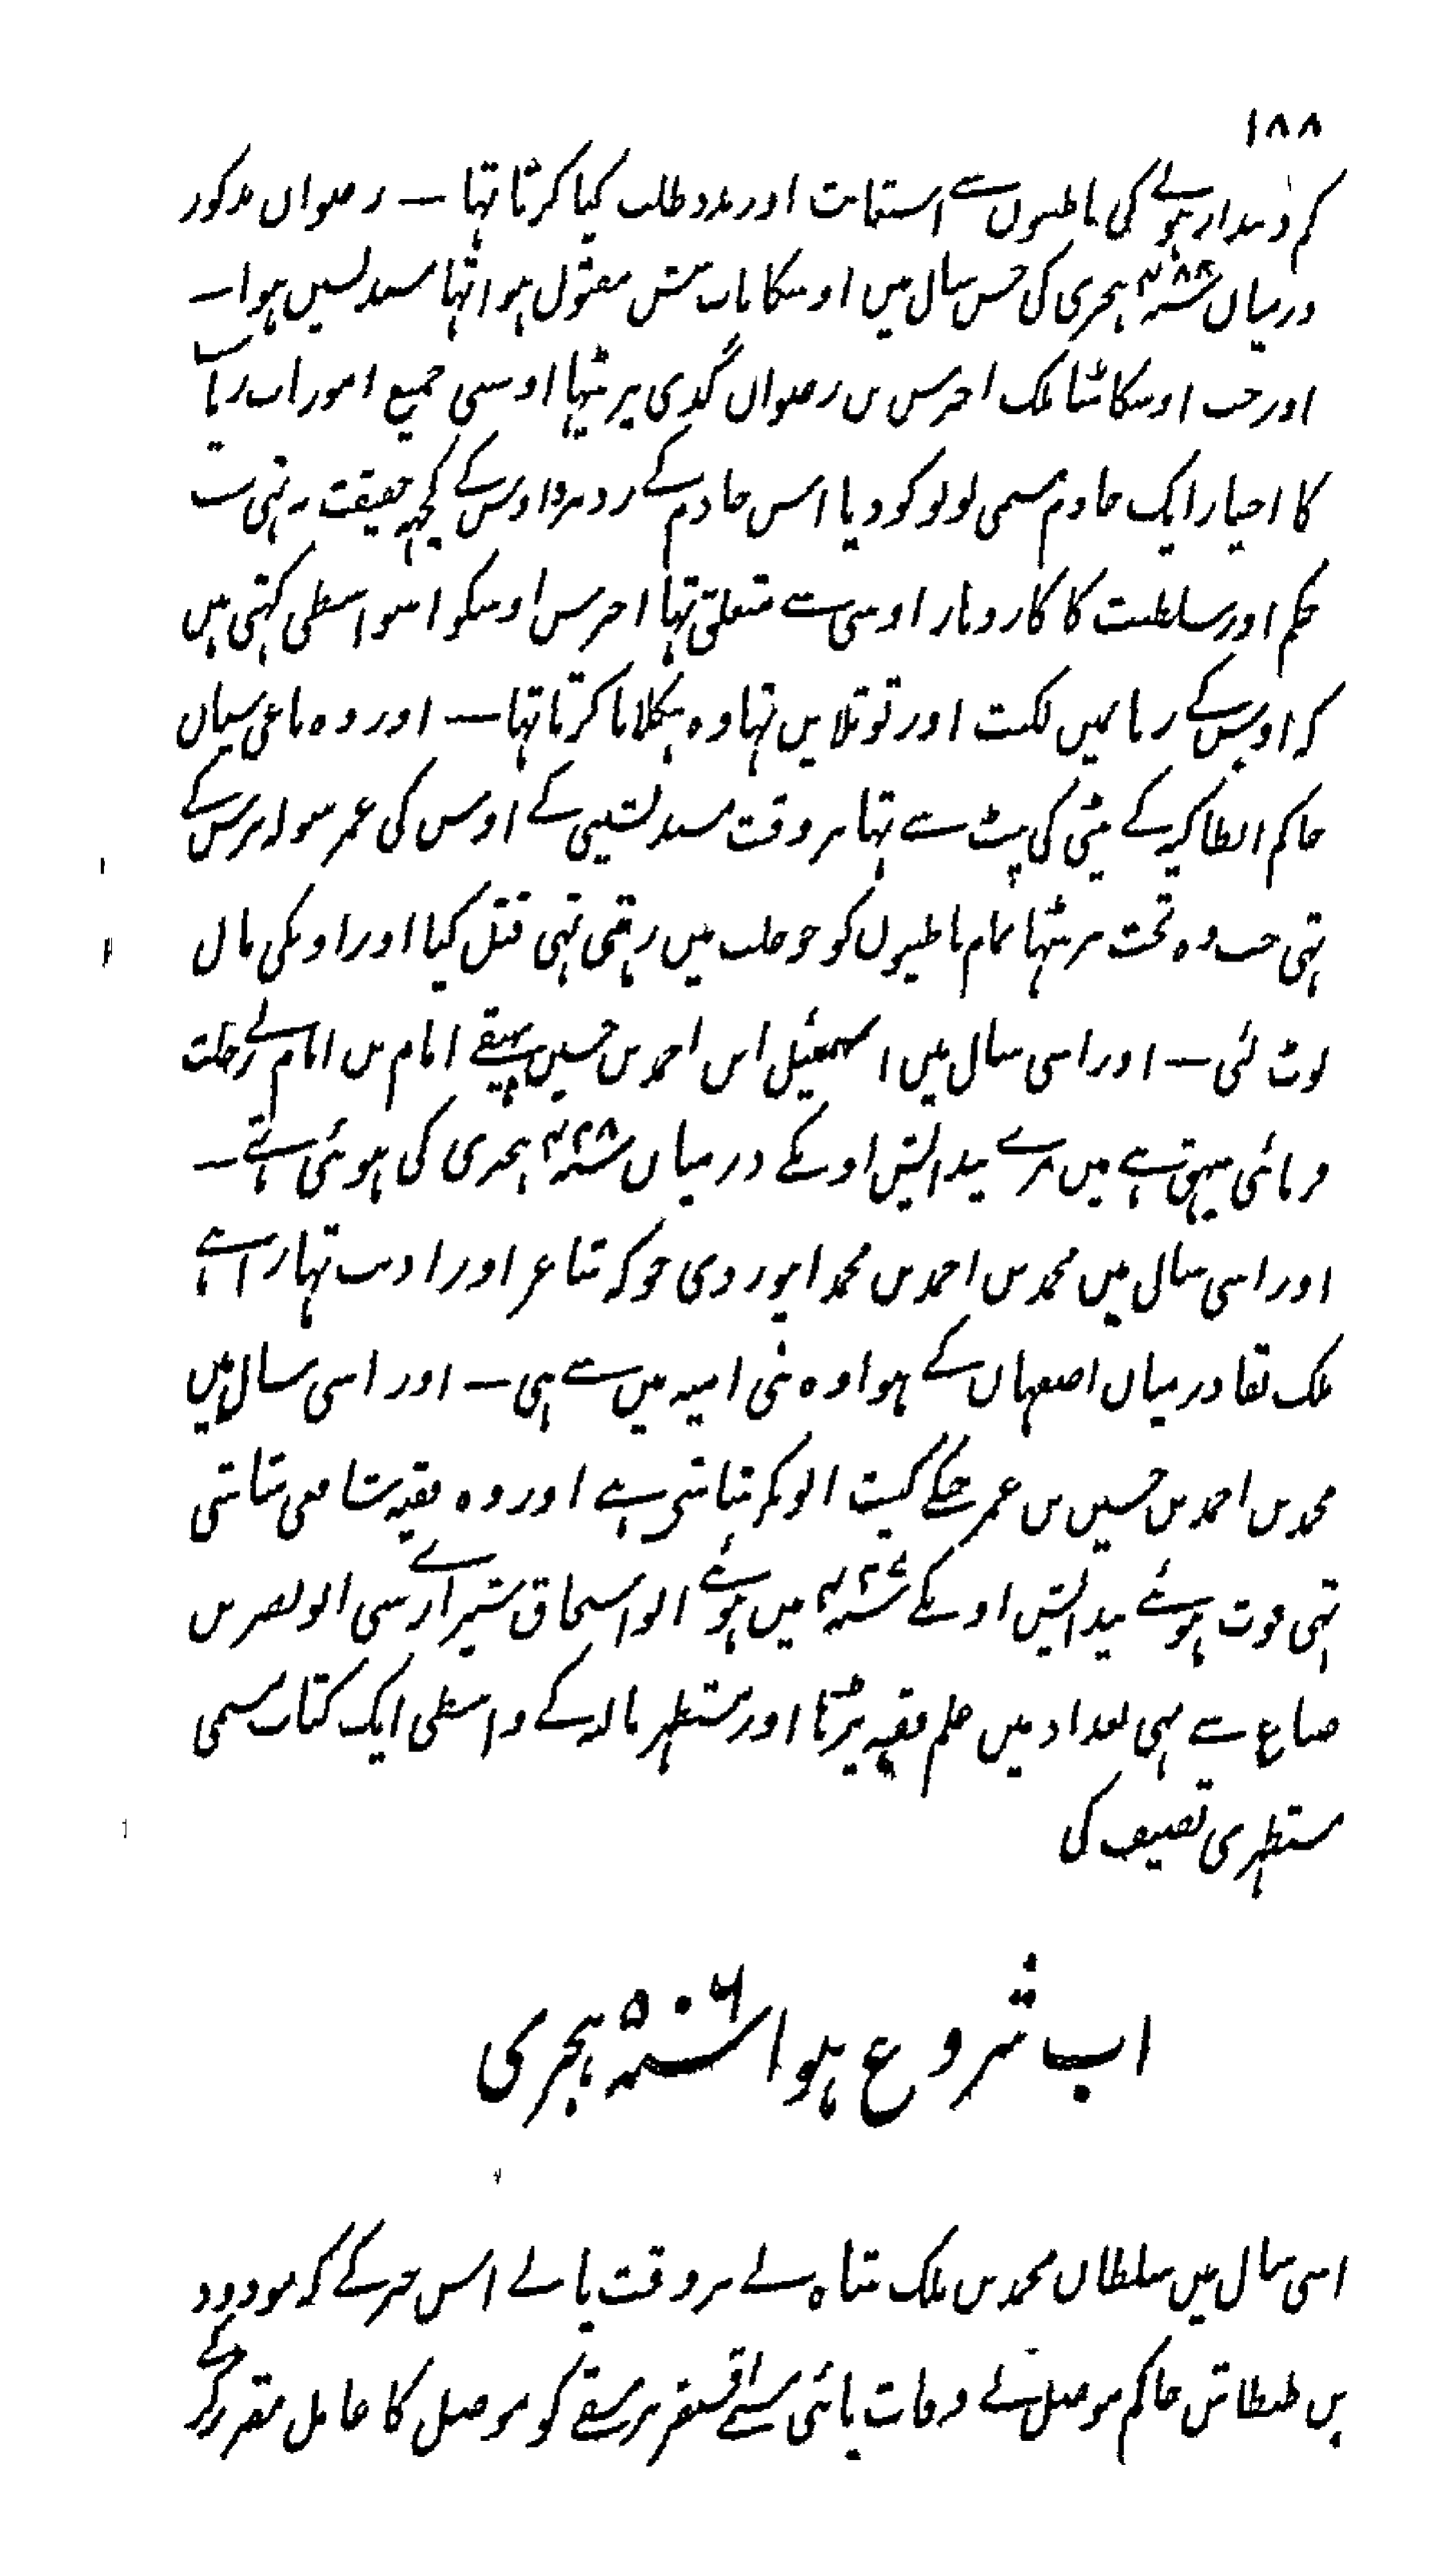 ۱۸۸
کم دیندار ہونے کی باطنیوں سے استعانت اور مدد طلب کیا کرتا تہا ــ رضوان مذکور
درمیان سنہ ۴۸۸ ہجری کی جس سال میں اوسکا باپ تتش مقتول ہوا تہا مسند نشین ہوا ــ
اور جب اوسکا بیٹا ملک اخرس بن رضوان گدی پر بیٹہا اوسی جمیع امورات ریاست
کا اختیار ایک خادم مسمی لولو کو دیا اس خادم کے روبرو اوس کے کچہہ حقیقت نہ تہی سب
حکم اور سلطنت کا کاروبار اوسی سے متعلق تہا اخرس اوسکو اسواسطی کہتی ہیں
کہ اوس کے زبانمیں لکنت اور توتلاپن تہا وہ ہکلایا کرتا تہا ــ اور وہ باغی سیان
حاکم انطاکیہ کے بیٹی کی پیٹ سے تہا بروقت مسند نشینی کے اوس کی عمر سولہ برس کے
تہی جب وہ تخت پر بیٹہا تمام باطنیوں کو جو حلب میں رہتی تہی قتل کیا اور اونکی مال
لوٹ لئی ــ اور اسی سال میں اسمعیل ابن احمد بن حسین بیہقے امام بن امام نے رحلت
فرمائی بیہق ہے میں مرے پیدایش اونکے درمیان سنہ ۴۲۸ ہجری کی ہوئی تہے ــ
اور اسی سال میں محمد بن احمد بن محمد ابیوردی جو کہ شاعر اور ادیب تہا راہے
ملک بقا درمیان اصفہان کے ہوا وہ بنی امیہ میں سے ہی ــ اور اسی سال میں
محمد بن احمد بن حسین بن عمر جنکے کنیت ابوبکر شاشی ہے اور وہ فقیہ شافعی شاشی
تہی فوت ہوئے پیدایش اونکے سنہ ۴۲۷ میں ہوئے ابو اسحاق شیرازے سی ابو نصر بن
صباغ سے بہی بغداد میں علم فقہ پڑہا اور مستظہر باللہ کے واسطی ایک کتاب مسمی
مستظہری تصنیف کی
اب شروع ہوا سنہ ۵۰۶ ہجری
اسی سال میں سلطان محمد بن ملک شاہ نے بروقت پانے اس خبر کے کہ مودود
بن طنطاش حاکم موصل نے وفات پائی اقسنقر برسقے کو موصل کا عامل مقرر کر کے